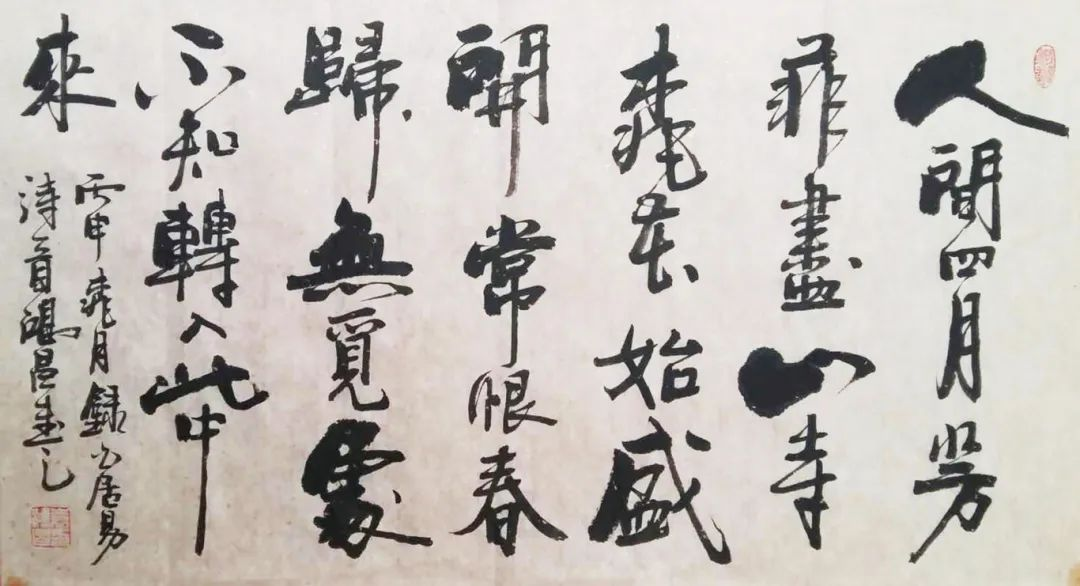 人間四月芳
菲盡山寺
桃花始盛
開常恨春
歸無覓處
不知轉入此中
來
丙申桃月錄白居易
詩一首書之